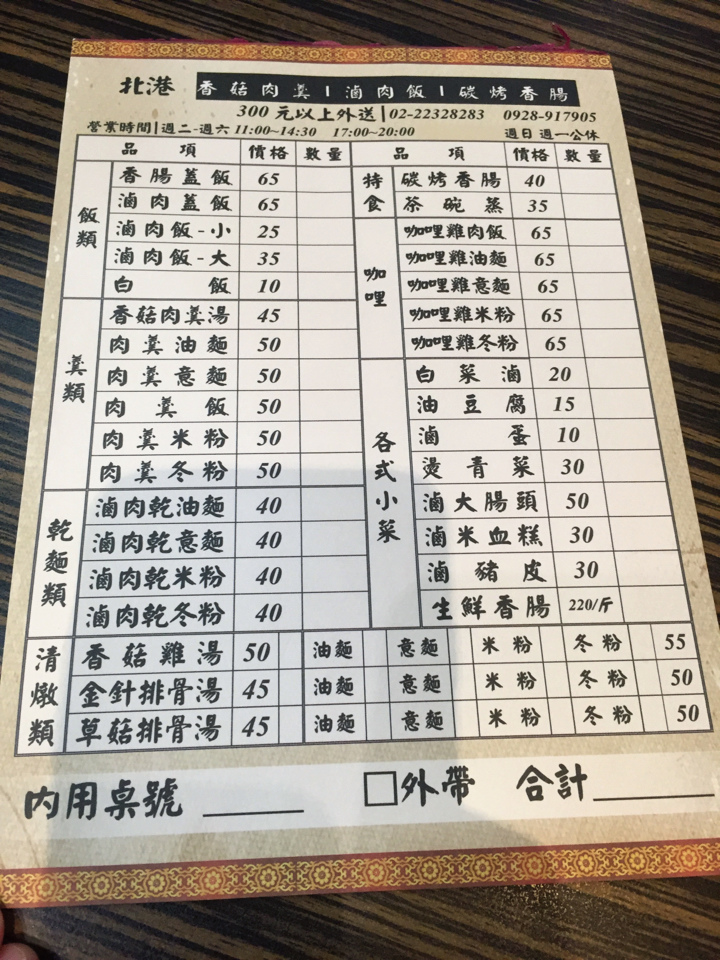 北港 香菇肉羹 | 滷肉飯 | 碳烤香腸
300元以上外送 | 02-22328283 0928-917905
營業時間 | 週二-週六 11:00~14:30 17:00~20:00 週日 週一公休
品項 價格 數量 品項 價格 數量
飯類
香腸蓋飯 65
滷肉蓋飯 65
滷肉飯-小 25
滷肉飯-大 35
白飯 10
羹類
香菇肉羹湯 45
肉羹油麵 50
肉羹意麵 50
肉羹飯 50
肉羹米粉 50
肉羹冬粉 50
乾麵類
滷肉乾油麵 40
滷肉乾意麵 40
滷肉乾米粉 40
滷肉乾冬粉 40
持食
碳烤香腸 40
茶碗蒸 35
咖哩
咖哩雞肉飯 65
咖哩雞油麵 65
咖哩雞意麵 65
咖哩雞米粉 65
咖哩雞冬粉 65
各式小菜
白菜滷 20
油豆腐 15
滷蛋 10
燙青菜 30
滷大腸頭 50
滷米血糕 30
滷豬皮 30
生鮮香腸 220/斤
清燉類
香菇雞湯 50 油麵 意麵 米粉 冬粉 55
金針排骨湯 45 油麵 意麵 米粉 冬粉 50
草菇排骨湯 45 油麵 意麵 米粉 冬粉 50
內用桌號 □外帶 合計